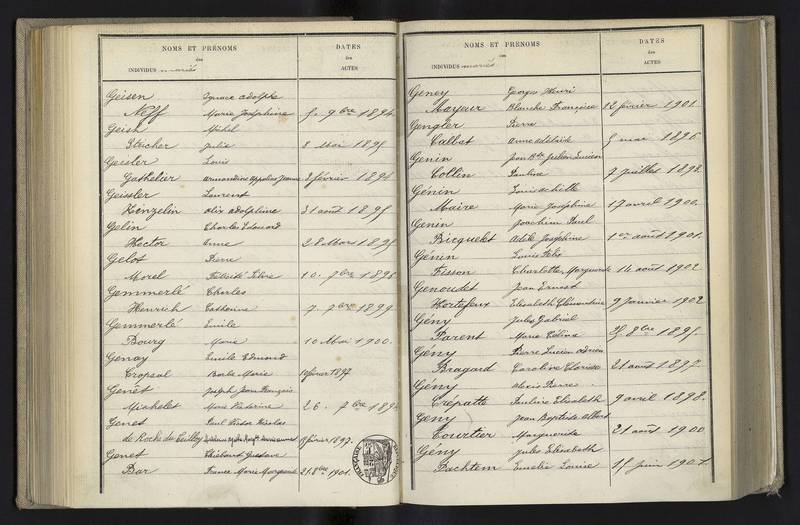 NOMS ET PRÉNOMS
des
INDIVIDUS mariés
DATES
des
ACTES
Geisen Ignace Adolphe
Neff Marie Joséphine 5. 9bre 1894
Geish Michel
Stricher Julie 8 Mai 1895
Geisler Louis
Gathelier Jeanne 3 février 1896
Geissler Laurent
Kinzelin Alix Adolphine 31 août 1895
Gelin Charles Edouard
Hector Anne 28 Mars 1895
Gelot Pierre
Morel 10. 7bre 1896
Gemmerlé Charles
Henrich Catherine 7. 7bre 1899
Gemmerlé Emile
Bourg Marie 10 Mai 1900.
Genay Emile Edmond
Cropsal Barbe Marie 10 février 1897
Genêt Joseph Jean François
Michelet Marie 26. 7bre
Genet Paul Victor Nicolas
de Roche du Teilloy 18 février 1897.
Genet Thiébaut Gustave
Bar France Marie Marguerite 21. 8bre 1901.
NOMS ET PRÉNOMS
des
INDIVIDUS mariés
DATES
des
ACTES
Geney Georges Henri
Mayeur Blanche Françoise 12 février 1901.
Gengler Pierre
Calbet Anne Adélaïde 5 mai 1896
Genin Jean Bte Julien Lucien
Collin Pauline 7 juillet 1898.
Génin Louis Achille
Maire Marie Joséphine 17 avril 1900.
Genin Joachim Paul
Bicquelet Adèle Joséphine 1er août 1901.
Génin Louis Félix
Tisson Charlotte Marguerite 14 août 1902
Genoudet Jean Ernest
Hortefeux Elisabeth Clémentine 9 Janvier 1902
Gény Jules Gabriel
Parent Marie Céline 8bre 1895.
Gény Pierre Lucien Adrien
Bragard Caroline Clarisse 21 août 1897.
Gény Alexis Pierre
Crépatte Pauline Elisabeth 9 avril 1898.
Geny Jean Baptiste Albert
Courtier Marguerite 21 août 1900
Gény Jules Elisabeth
Pachtem Emélie Louise 15 juin 1901.